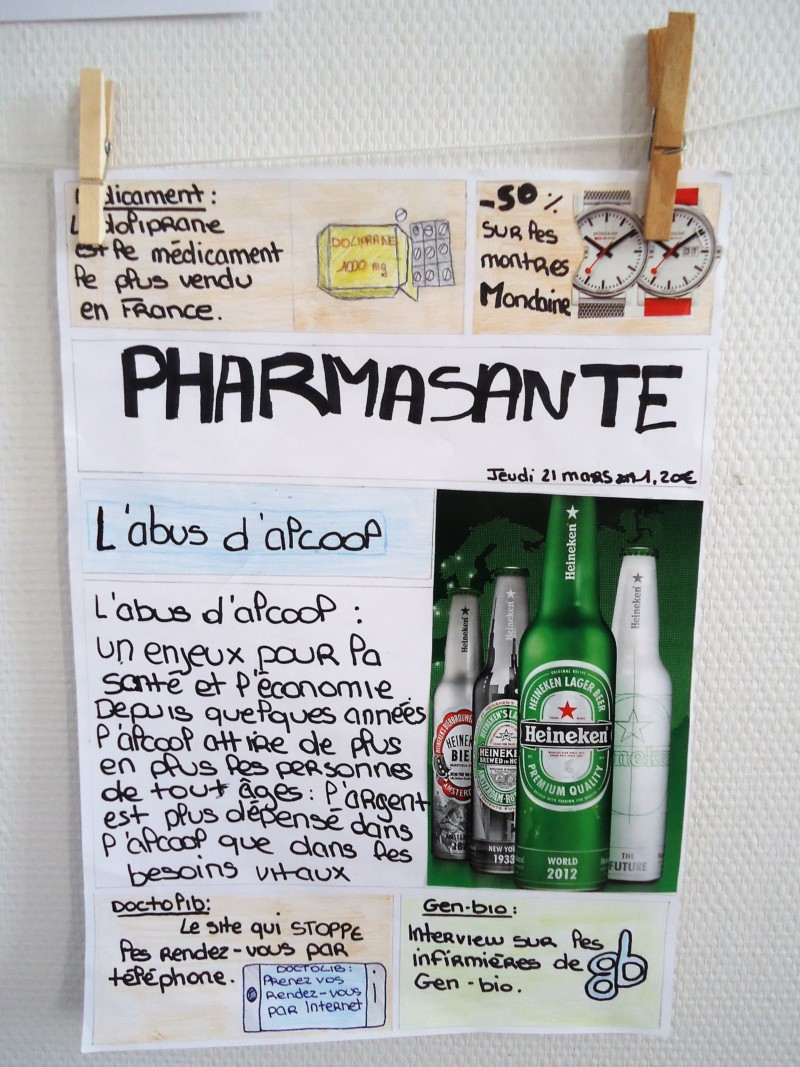 Médicament:
L doliprane
est le médicament
le plus vendu
en France.
DOLIPRANE
1000 mg
-50%
sur les
montres
Mondaine
MONDAINE
MONDAINE
PHARMASANTE
Jeudi 21 mars 2019 1,20€
L'abus d'alcool
L'abus d'alcool :
un enjeux pour la
santé et l'économie
Depuis quelques années
l'alcool attire de plus
en plus les personnes
de tout âges : l'argent
est plus dépensé dans
l'alcool que dans les
besoins vitaux
Heineken
Heineken
Heineken
Heineken
HEINEKEN LAGER BEER
Heineken
PREMIUM QUALITY
WORLD
2012
HEINEKEN'S
HEINEKEN
BREWED IN HO
NEW YOR
1933
HEINE
BIE
AMSTERD
THE
FUTURE
Doctolib:
Le site qui STOPPE
les rendez-vous par
téléphone.
DOCTOLIB:
Prenez vos
Rendez-vous
par Internet
Gen-bio:
Interview sur les
infirmières de
Gen-bio.
gb